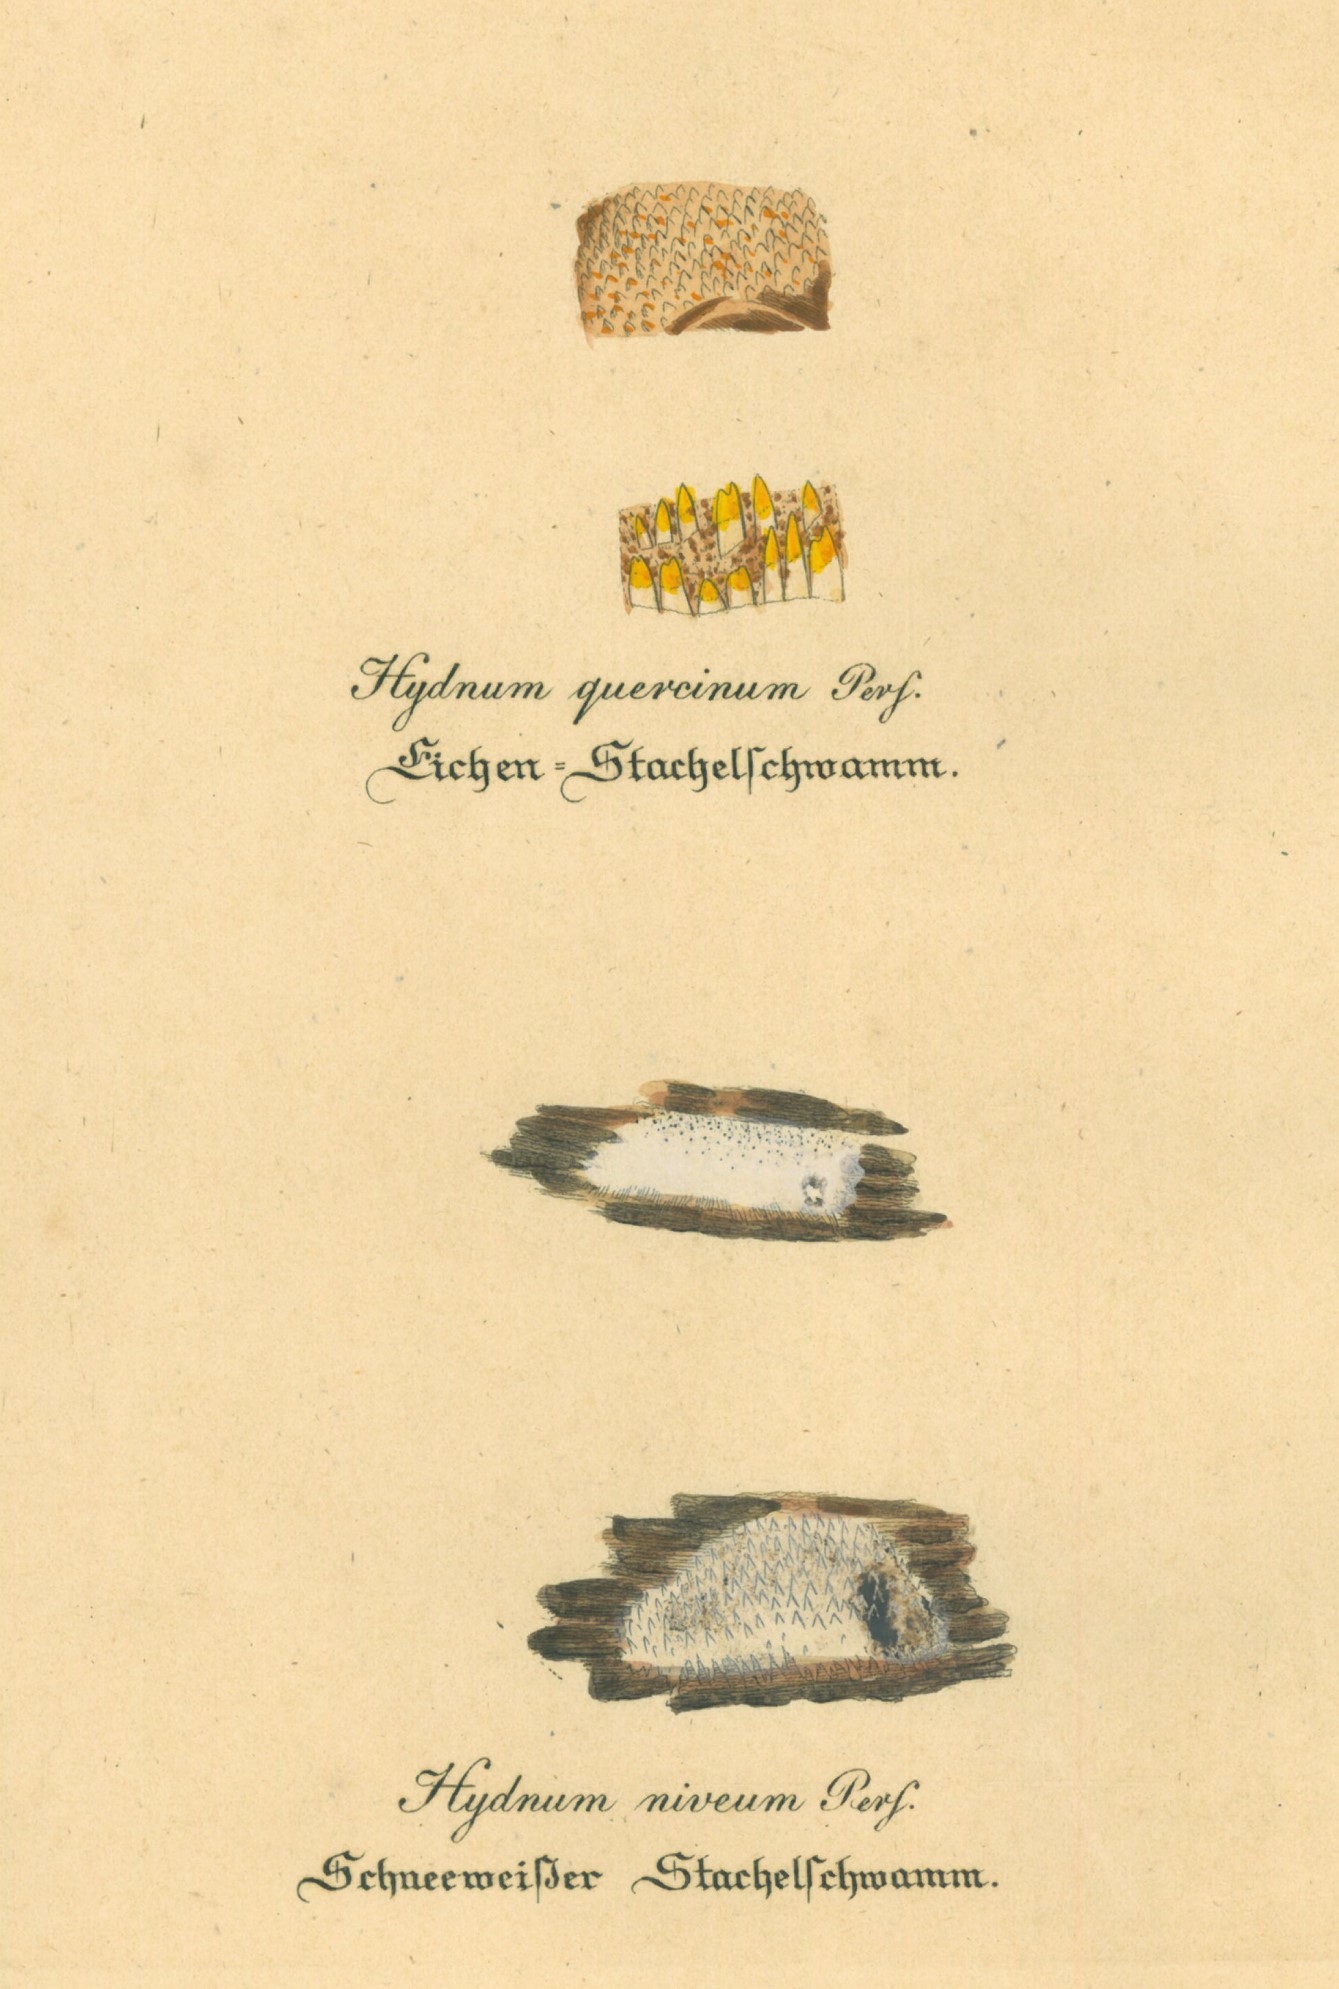 Hydnum quercinum Perſ.
Eichen=Stachelſchwamm.
Hydnum niveum Perſ.
Schneeweiſzer Stachelſchwamm.